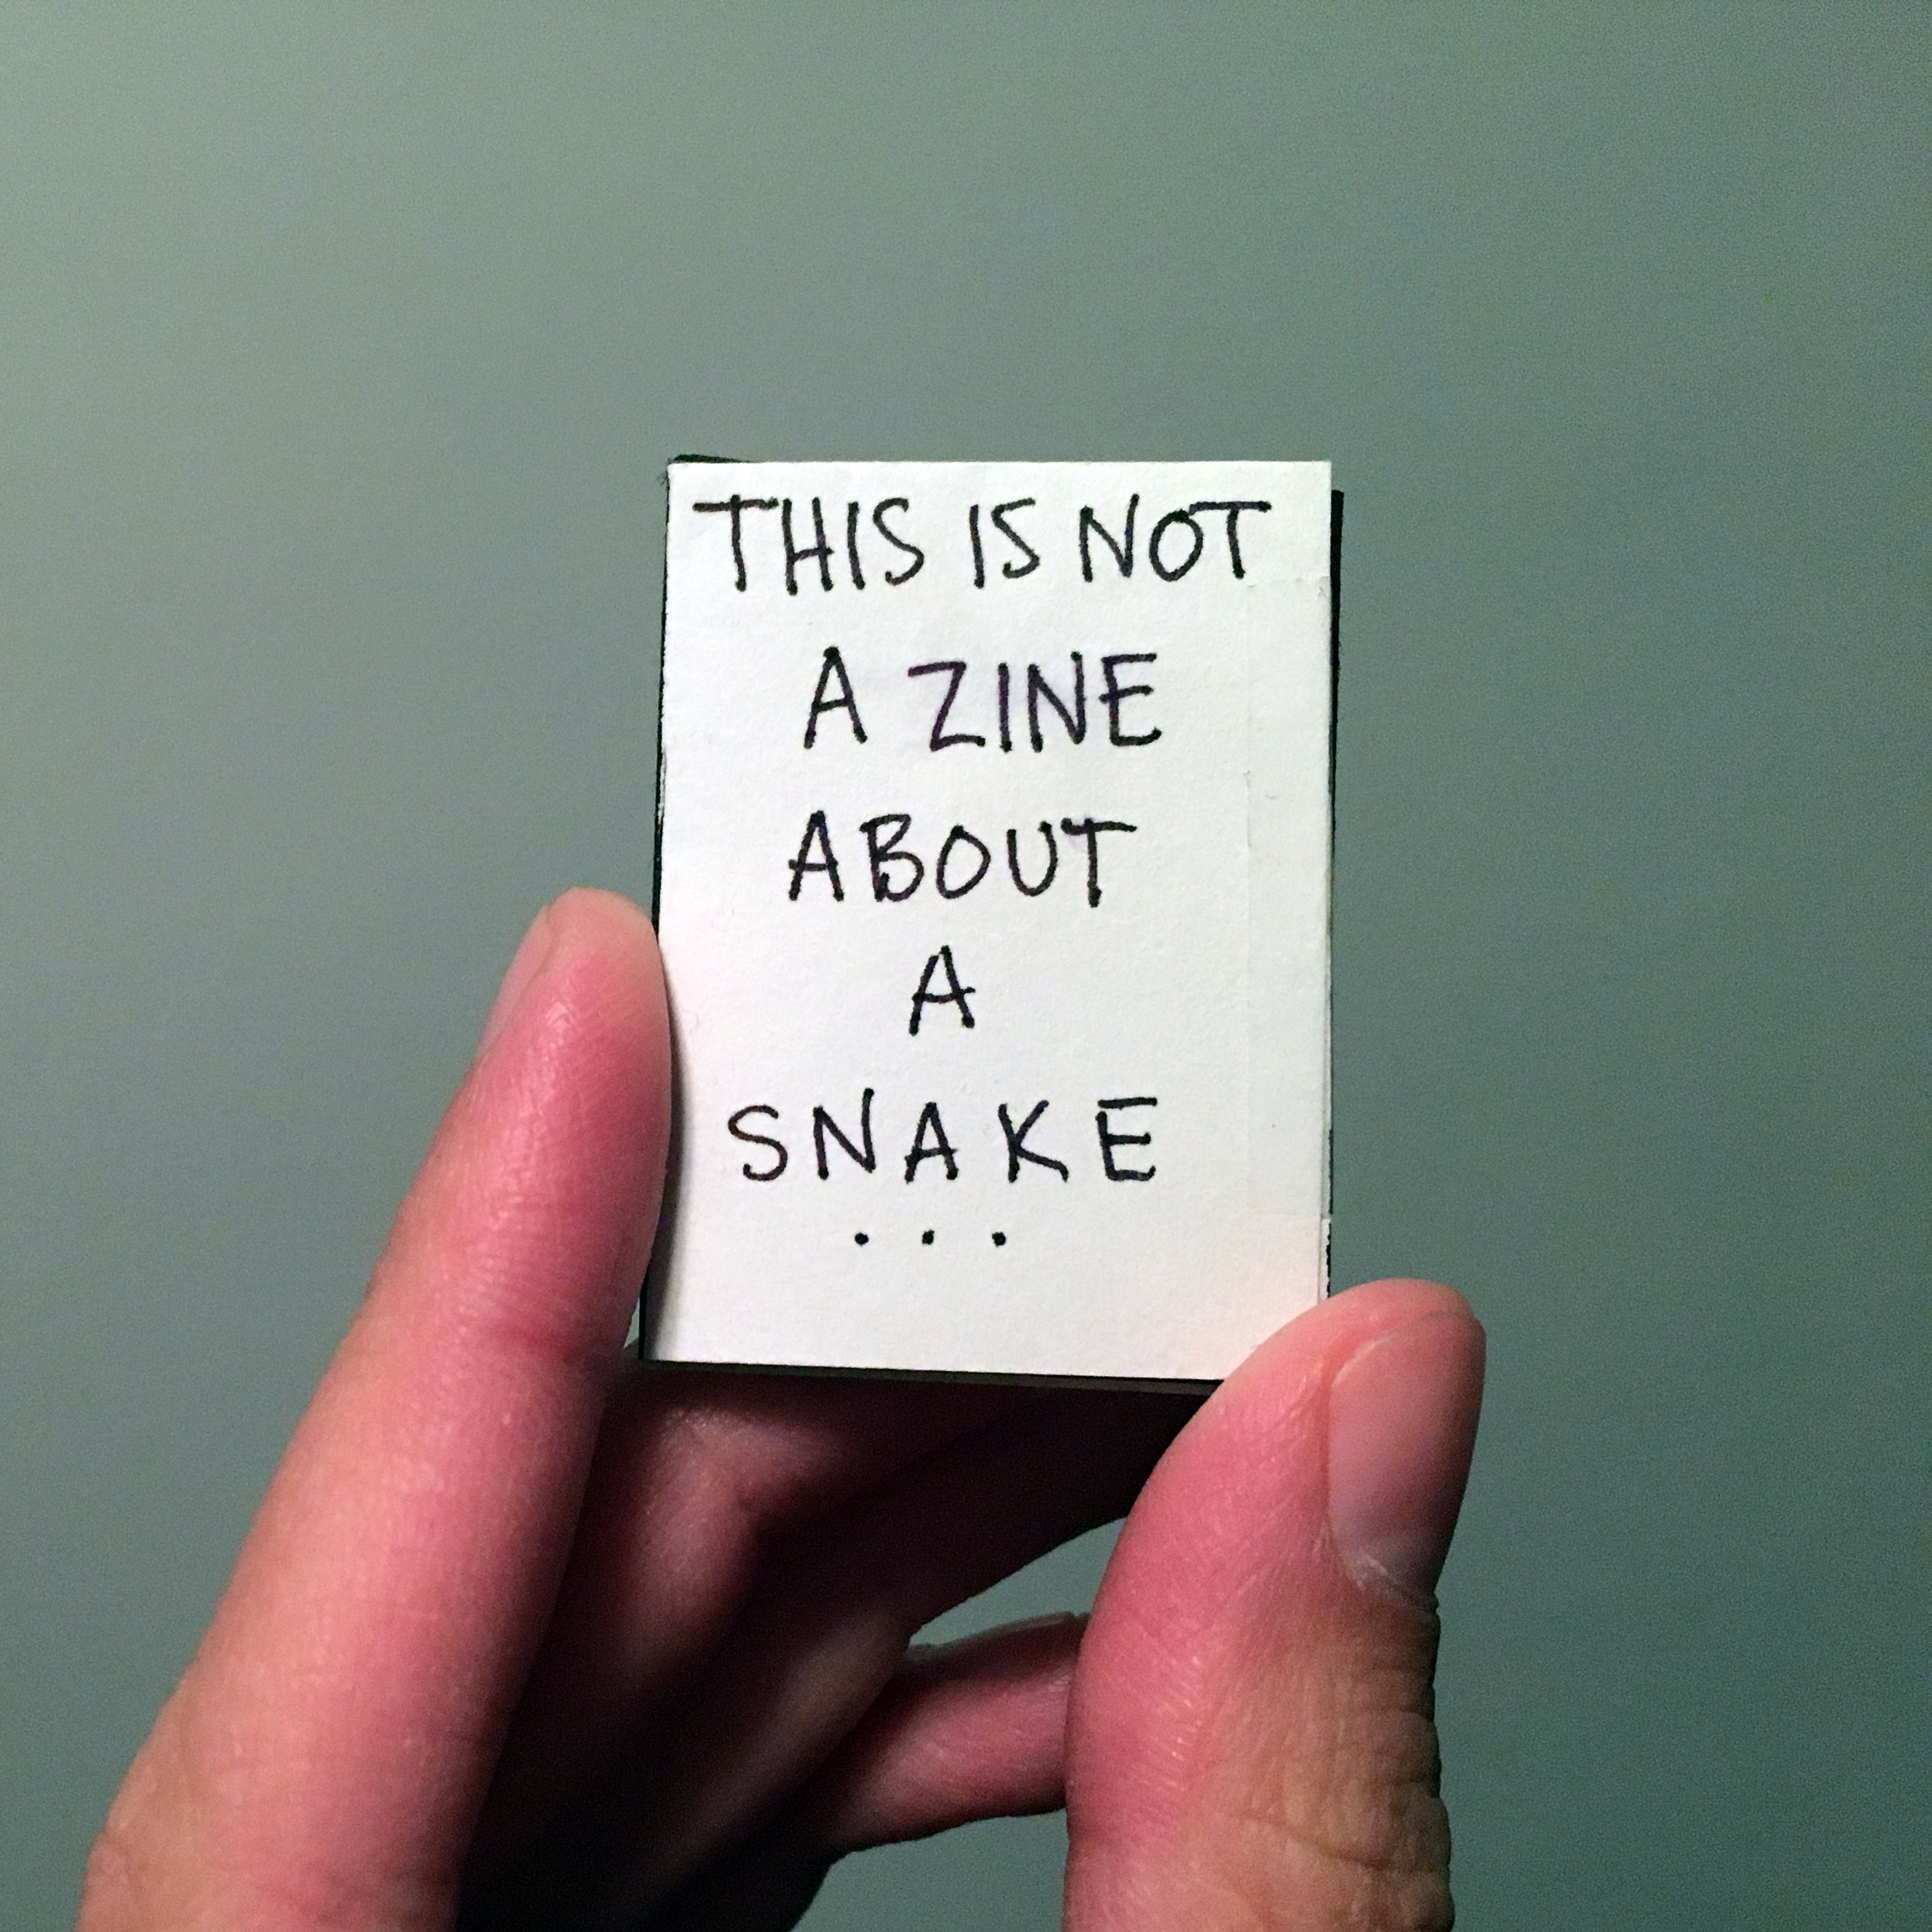 THIS IS NOT
A ZINE
ABOUT
A
SNAKE
...